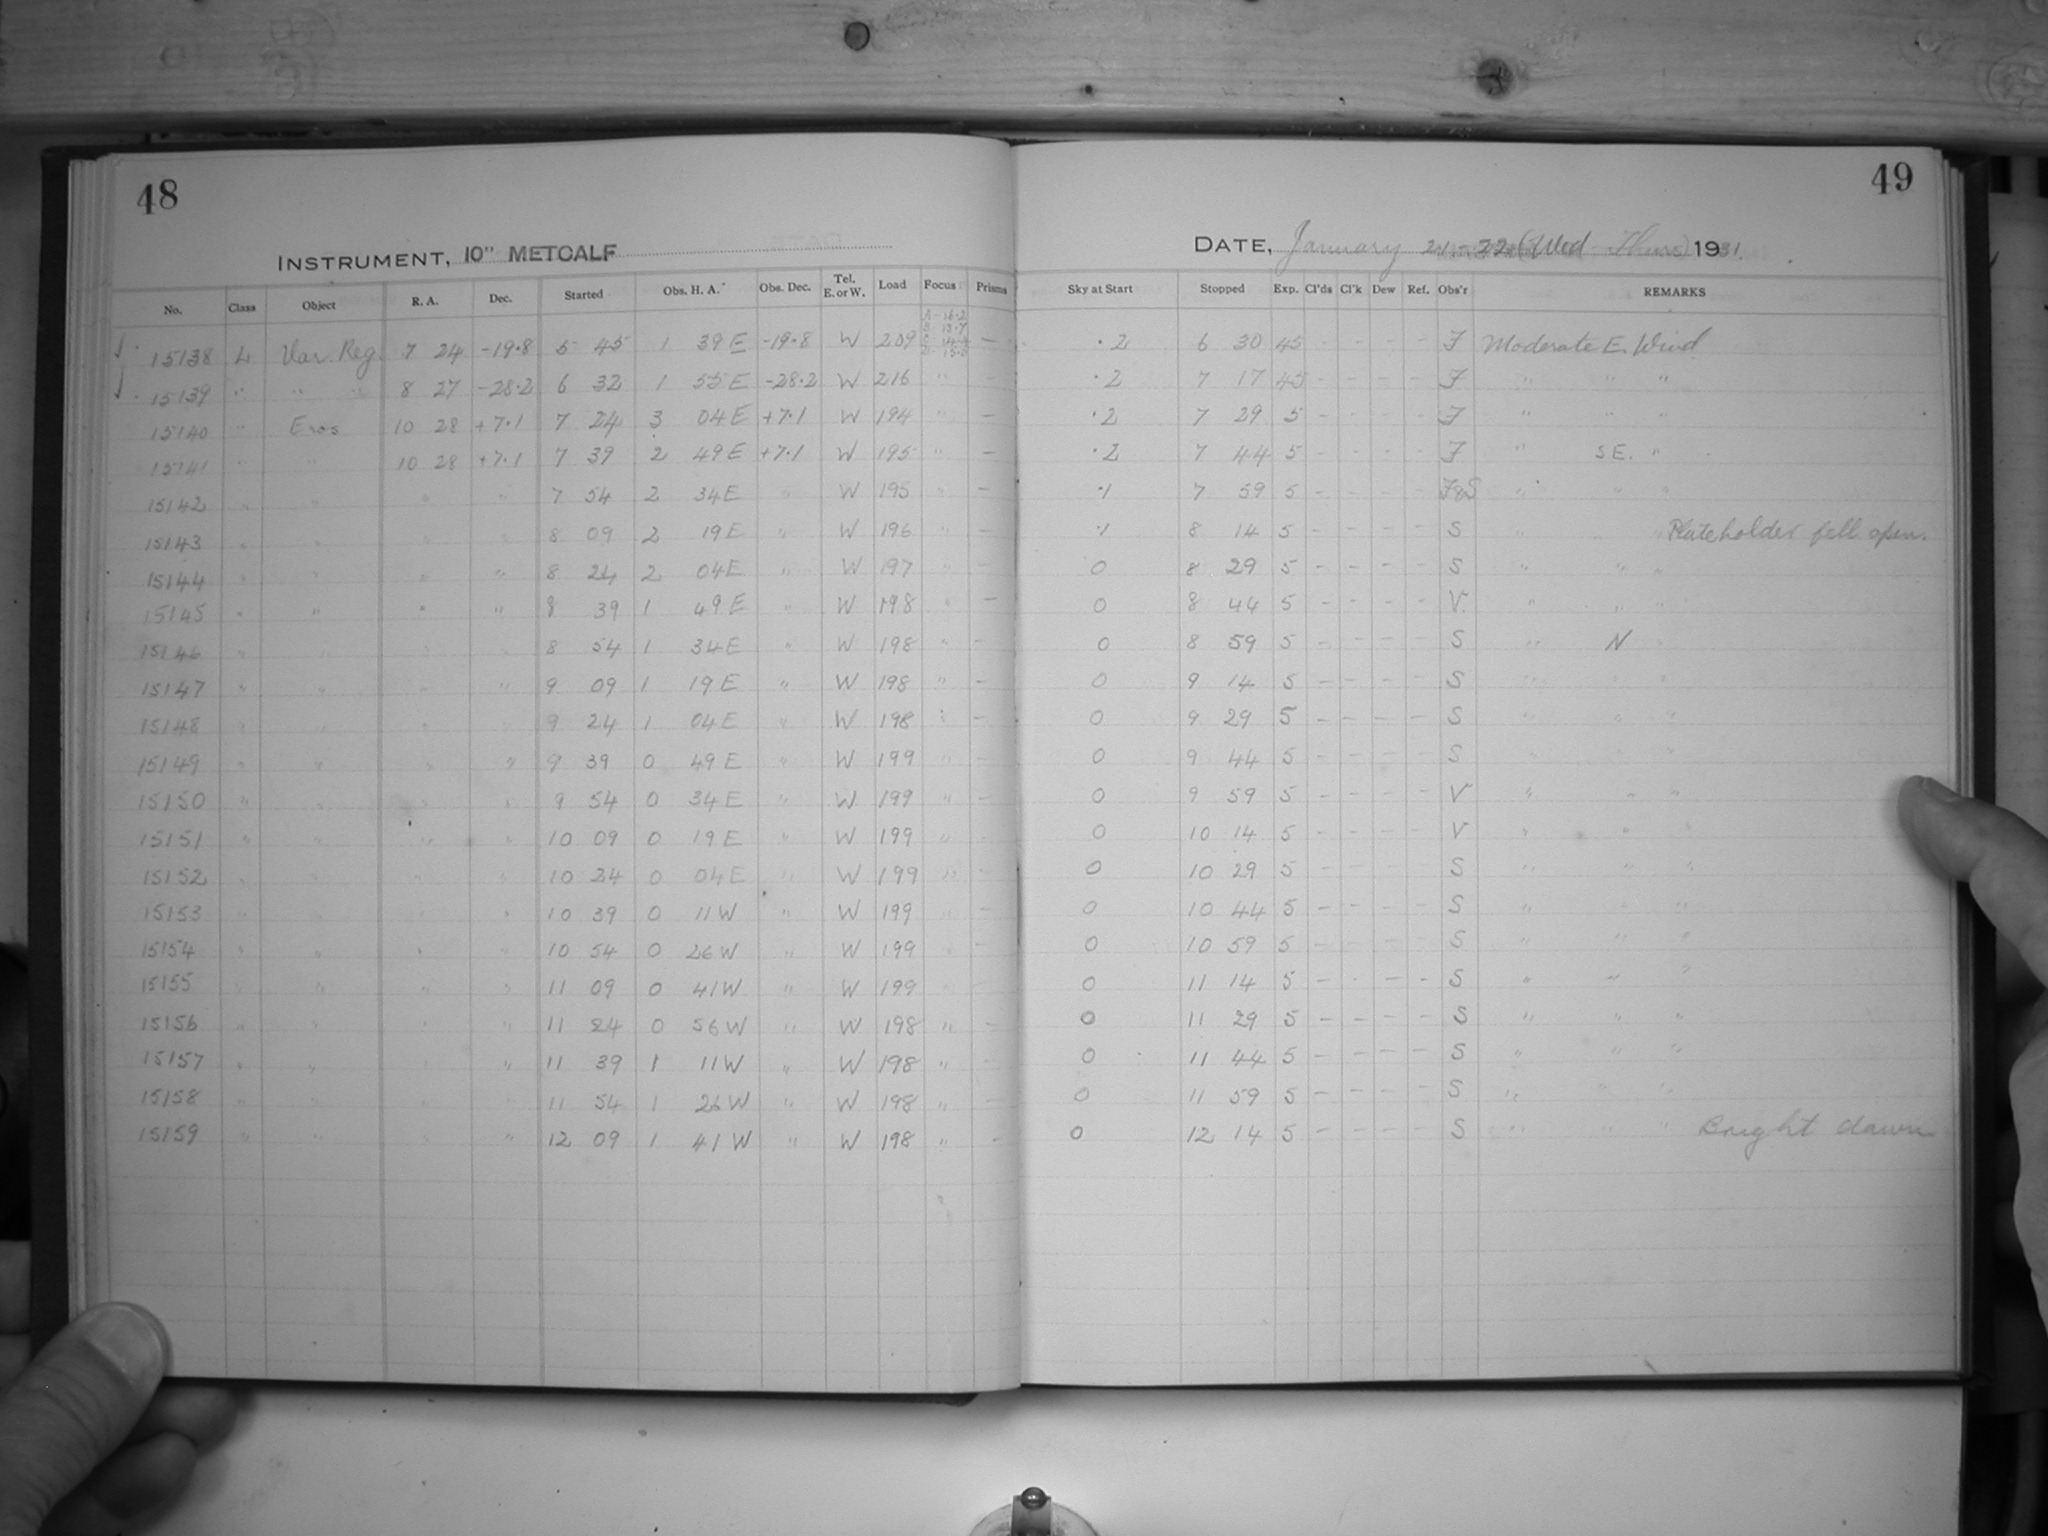 48
49
INSTRUMENT, 10" METCALF
DATE, January 21-22 (Wed Thurs) 1931.
No. Class Object R. A. Dec. Started Obs. H. A. Obs. Dec. Tel. E. or W. Load Focus Prisms Sky at Start Stopped Exp. Cl'ds Cl'k Dew Ref. Obs'r REMARKS
15138 L Var. Reg. 7 24 -19.8 5 45 1 39 E -19.8 W 209 A-16.2 — .2 6 30 45 F Moderate E. Wind
15139 " " " 8 27 -28.2 6 32 1 55 E -28.2 W 216 " — .2 7 17 45 - - - - F " " "
15140 " Eros 10 28 +7.1 7 24 3 04 E +7.1 W 194 " — .2 7 29 5 - - - - F " " "
15141 " " 10 28 +7.1 7 39 2 49 E +7.1 W 195 " — .2 7 44 5 - - - - F " SE. "
15142 " " " " 7 54 2 34 E " W 195 " — .1 7 59 5 - - - - F&S " " "
15143 " " " " 8 09 2 19 E " W 196 " — .1 8 14 5 - - - - S " " " Plateholder fell open.
15144 " " " " 8 24 2 04 E " W 197 " — 0 8 29 5 - - - - S " " "
15145 " " " " 8 39 1 49 E " W 198 " — 0 8 44 5 - - - - V. " " "
15146 " " " " 8 54 1 34 E " W 198 " — 0 8 59 5 - - - - S " N "
15147 " " " " 9 09 1 19 E " W 198 " — 0 9 14 5 - - - - S " " "
15148 " " " " 9 24 1 04 E " W 198 " — 0 9 29 5 - - - - S " " "
15149 " " " " 9 39 0 49 E " W 199 " — 0 9 44 5 - - - - S " " "
15150 " " " " 9 54 0 34 E " W 199 " — 0 9 59 5 - - - - V " " "
15151 " " " " 10 09 0 19 E " W 199 " — 0 10 14 5 - - - - V " " "
15152 " " " " 10 24 0 04 E " W 199 " — 0 10 29 5 - - - - S " " "
15153 " " " " 10 39 0 11 W " W 199 " — 0 10 44 5 - - - - S " " "
15154 " " " " 10 54 0 26 W " W 199 " — 0 10 59 5 - - - - S " " "
15155 " " " " 11 09 0 41 W " W 199 " — 0 11 14 5 - - - - S " " "
15156 " " " " 11 24 0 56 W " W 198 " — 0 11 29 5 - - - - S " " "
15157 " " " " 11 39 1 11 W " W 198 " — 0 11 44 5 - - - - S " " "
15158 " " " " 11 54 1 26 W " W 198 " — 0 11 59 5 - - - - S " " "
15159 " " " " 12 09 1 41 W " W 198 " - 0 12 14 5 - - - - S " " " Bright dawn